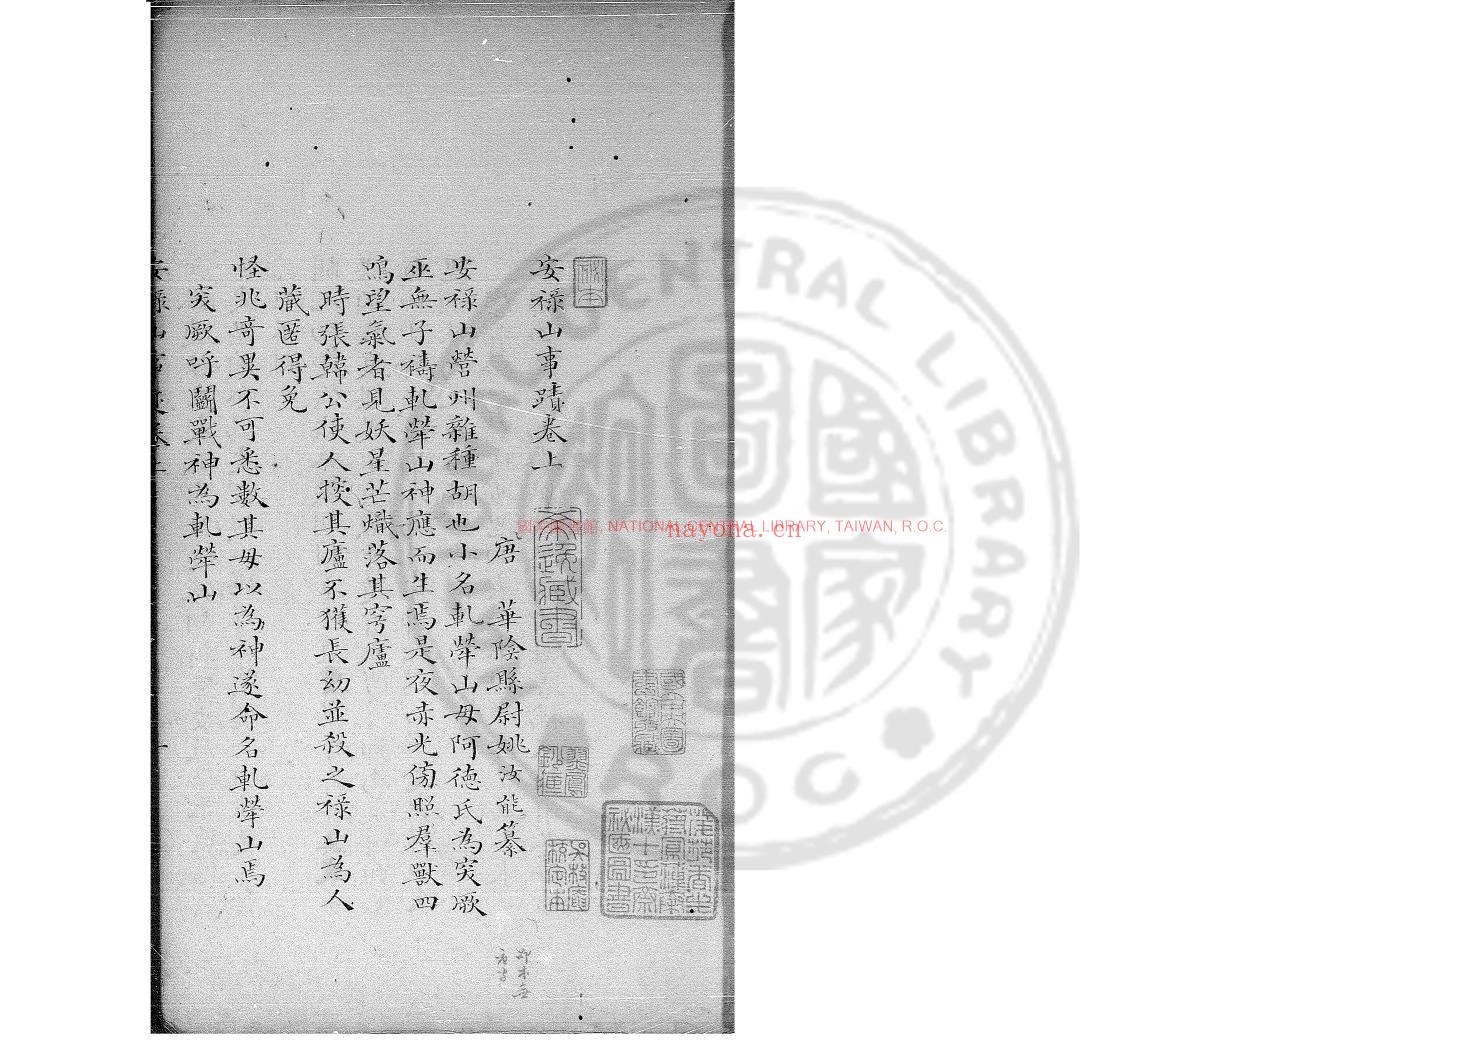 安祿山事蹟卷上
唐 華陰縣尉姚汝能纂
安祿山營州雜種胡也小名軋犖山母阿德氏為突厥
巫無子禱軋犖山神應而生焉是夜赤光傍照羣獸四
鳴望氣者見妖星芒熾落其穹廬
時張韓公使人搜其廬不獲長幼並殺之祿山為人
藏匿得免
怪兆奇異不可悉數其母以為神遂命名軋犖山焉
突厥呼鬭戰神為軋犖山
國家圖書館, NATIONAL CENTRAL LIBRARY, TAIWAN, R.O.C.
nayona.cn
CENTRAL LIBRARY
R.O.C
國家圖書